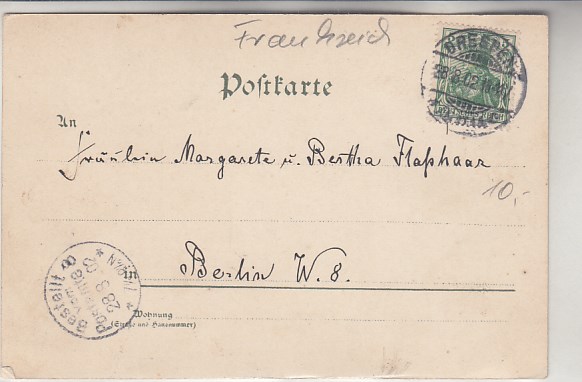 Frankreich
DRESDEN
Postkarte
An
Fräulein Margarete u. Bertha Flaßhaar
10,-
Berlin W. 8.
in
Bestellt
vom
Postamte
8
28 3
Wohnung
(Straße und Hausnummer)